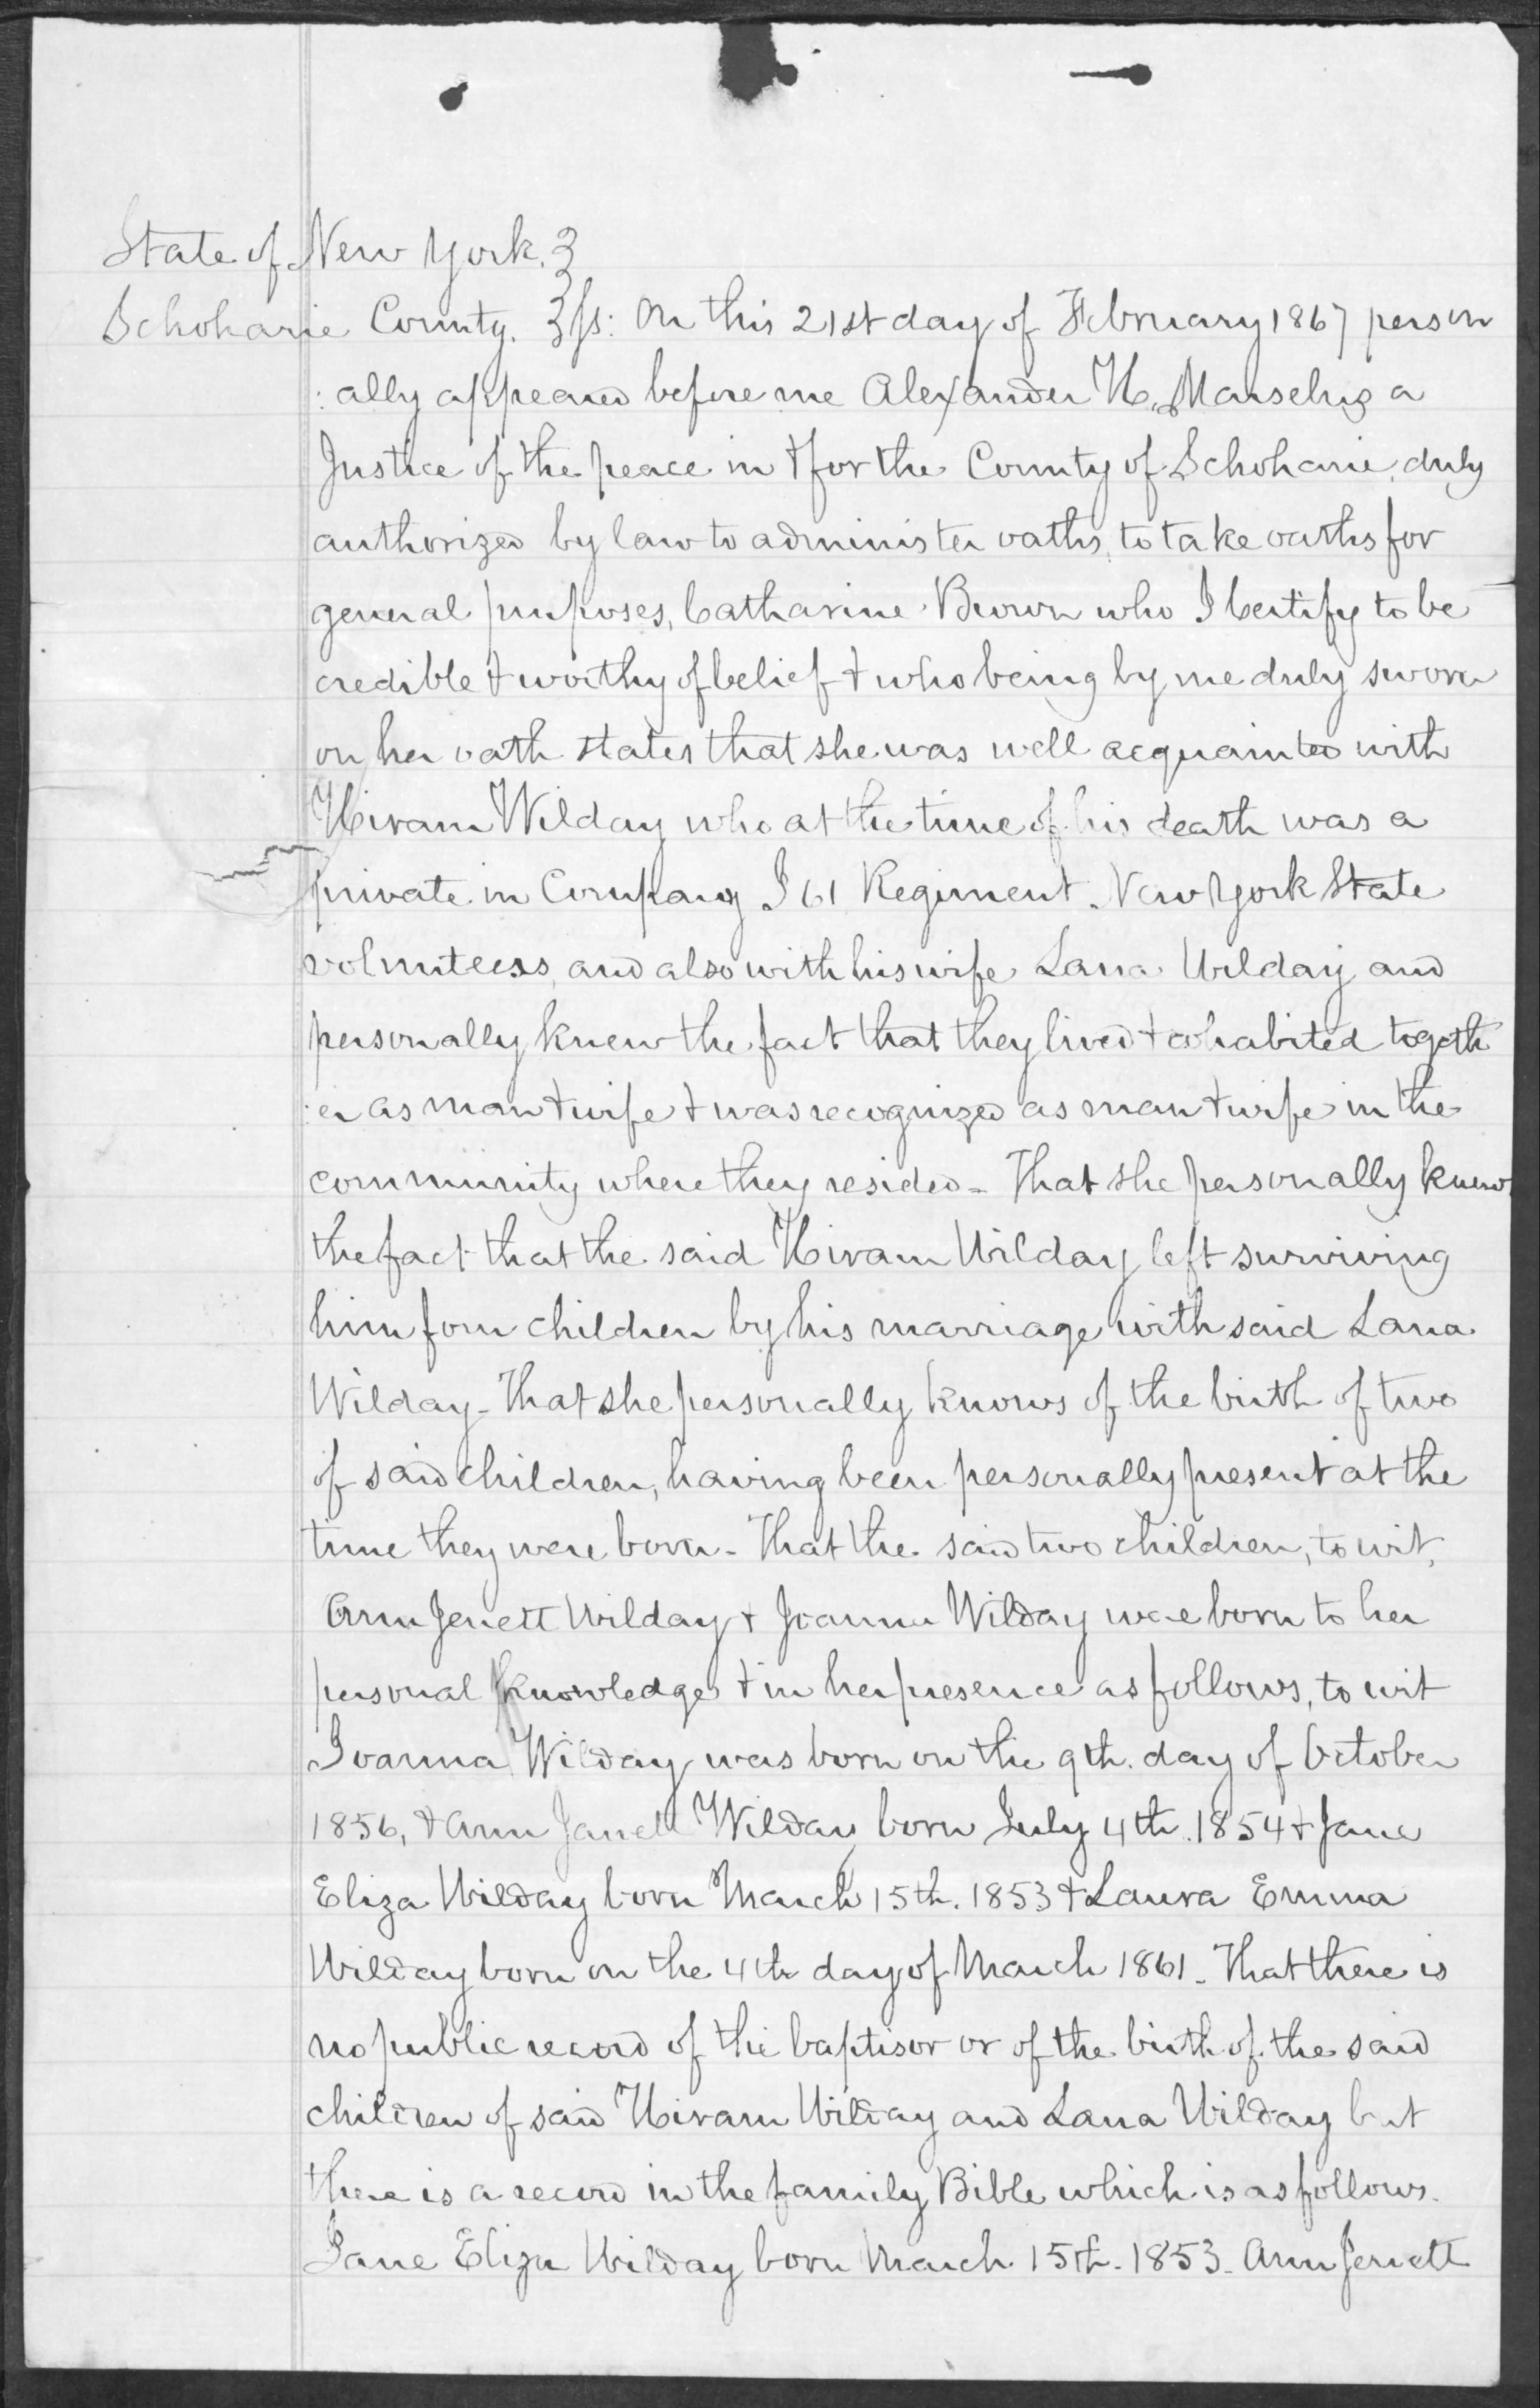 State of New York. }
Schoharie County. } ss: On this 21st day of February 1867 person
: ally appeared before me Alexander H. Marselus a
Justice of the peace in & for the County of Schoharie, duly
authorized by law to administer oaths, to take oaths for
general purposes, Catharine Brown who I Certify to be
credible & worthy of belief & who being by me duly sworn
on her oath states that she was well acquainted with
Hiram Wilday who at the time of his death was a
private in Company I 61 Regiment New York State
volunteers, and also with his wife Lana Wilday and
personally knew the fact that they lived & cohabited togeth
: er as man & wife & was recognized as man & wife in the
community where they resided - That she personally knew
the fact that the said Hiram Wilday left surviving
him four children by his marriage with said Lana
Wilday - That she personally knows of the birth of two
of said children, having been personally present at the
time they were born - That the said two children, to wit,
Ann Jenett Wilday & Joanna Wilday were born to her
personal knowledge & in her presence as follows, to wit
Joanna Wilday was born on the 9th. day of October
1856, & Ann Janett Wilday born July 4th. 1854 & Jane
Eliza Wilday born March 15th. 1853 & Laura Emma
Wilday born on the 4th day of March 1861 - That there is
no public record of the baptisor or of the birth of the said
children of said Hiram Wilday and Lana Wilday but
there is a record in the family Bible which is as follows.
Jane Eliza Wilday born March 15th. 1853 - Ann Jenett